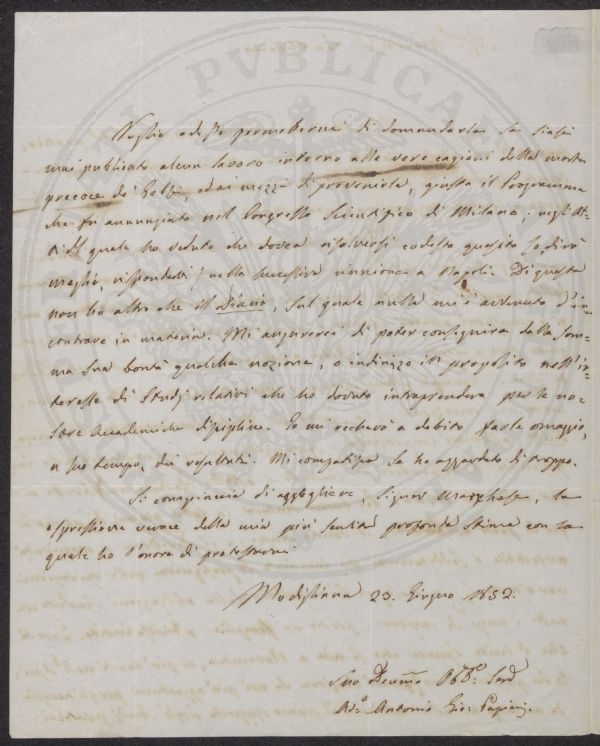 Voglio adesso permettermi di domandarle se siasi
mai publicato alcun lavoro intorno alle vere cagioni della morte
precoce de' Gelsi, ed ai mezzi di prevenirla, giusta il Programma
che fu annunziato nel Congresso Scientifico di Milano: negli At-
ti del quale ho veduto che dovea risolversi codesto quesito (o, dirò
meglio, rispondersi) nella successiva riunione a Napoli. Di questa
non ho altro che il Diario, sul quale nulla mi è avvenuto d'in-
contrare in materia. Mi augurerei di poter conseguire dalla som-
ma Sua bontà qualche nozione, o indirizzo in proposito nell'in-
teresse di Studj relativi che ho dovuto intraprendere per le no-
stre Accademiche discipline. Io mi recherò a debito farle omaggio,
a suo tempo, dei resultati. Mi compatisca se ho azzardato di troppo.
Si compiaccia di aggogliere, Signor Marchese, la
espressione verace della mia più sentita profonda stima con la
quale ho l'onore di protestarmi
Modigliana 23. Giugno 1852.
Suo Devmo Obbo: Serv
Avo. Antonio Gio:
PVBLICA